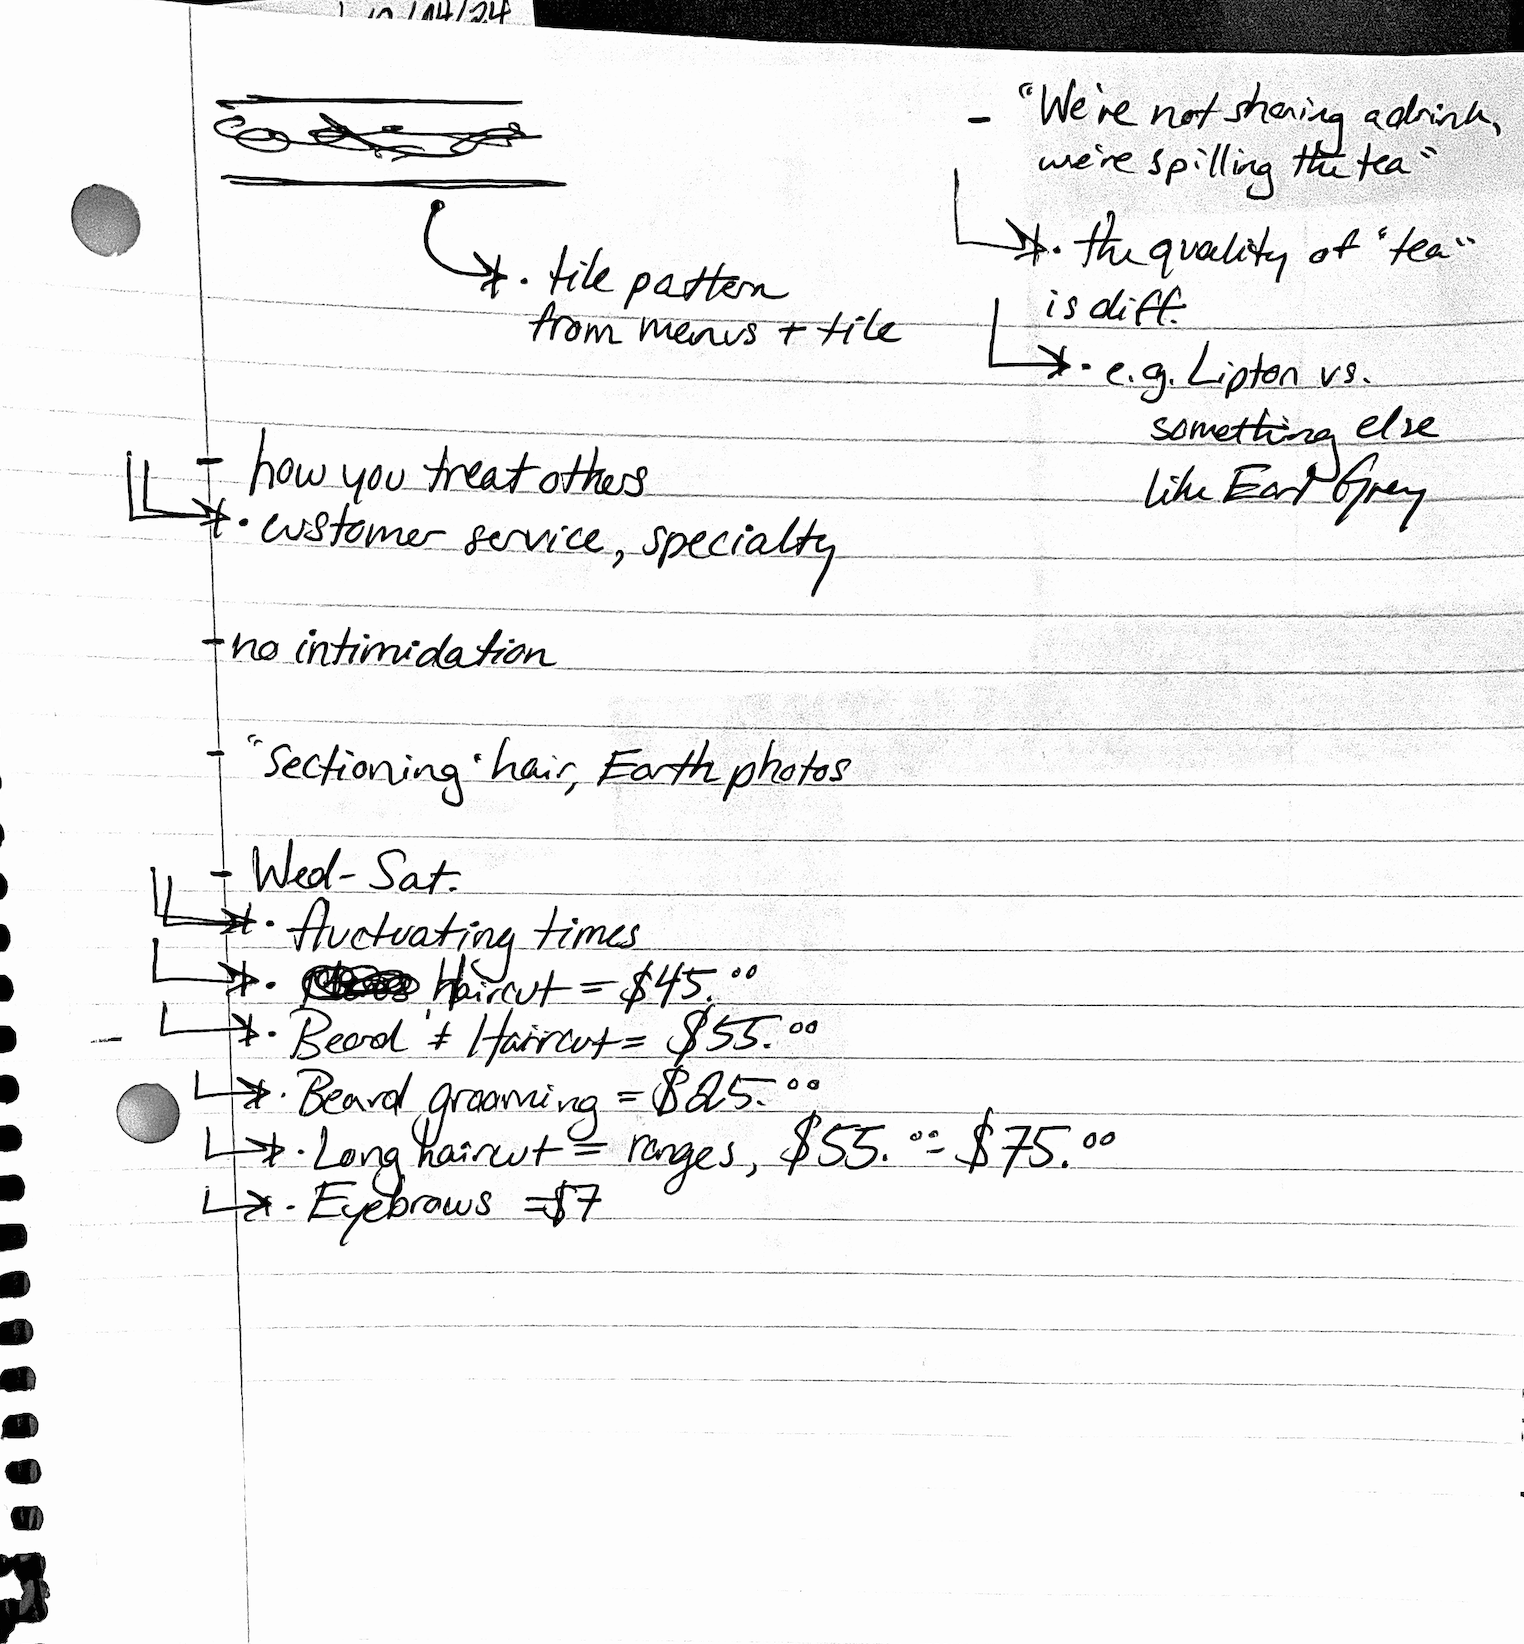 tile pattern
from menus + tile
- "We're not sharing a drink,
we're spilling the tea"
· the quality of "tea"
is diff.
· e.g. Lipton vs.
something else
like Earl Grey
- how you treat others
· customer service, specialty
- no intimidation
- "Sectioning" hair, Earth photos
- Wed-Sat.
· fluctuating times
· Haircut = $45.00
· Beard + Haircut = $55.00
· Beard grooming = $25.00
· Long haircut = ranges, $55.00 - $75.00
· Eyebrows = $7